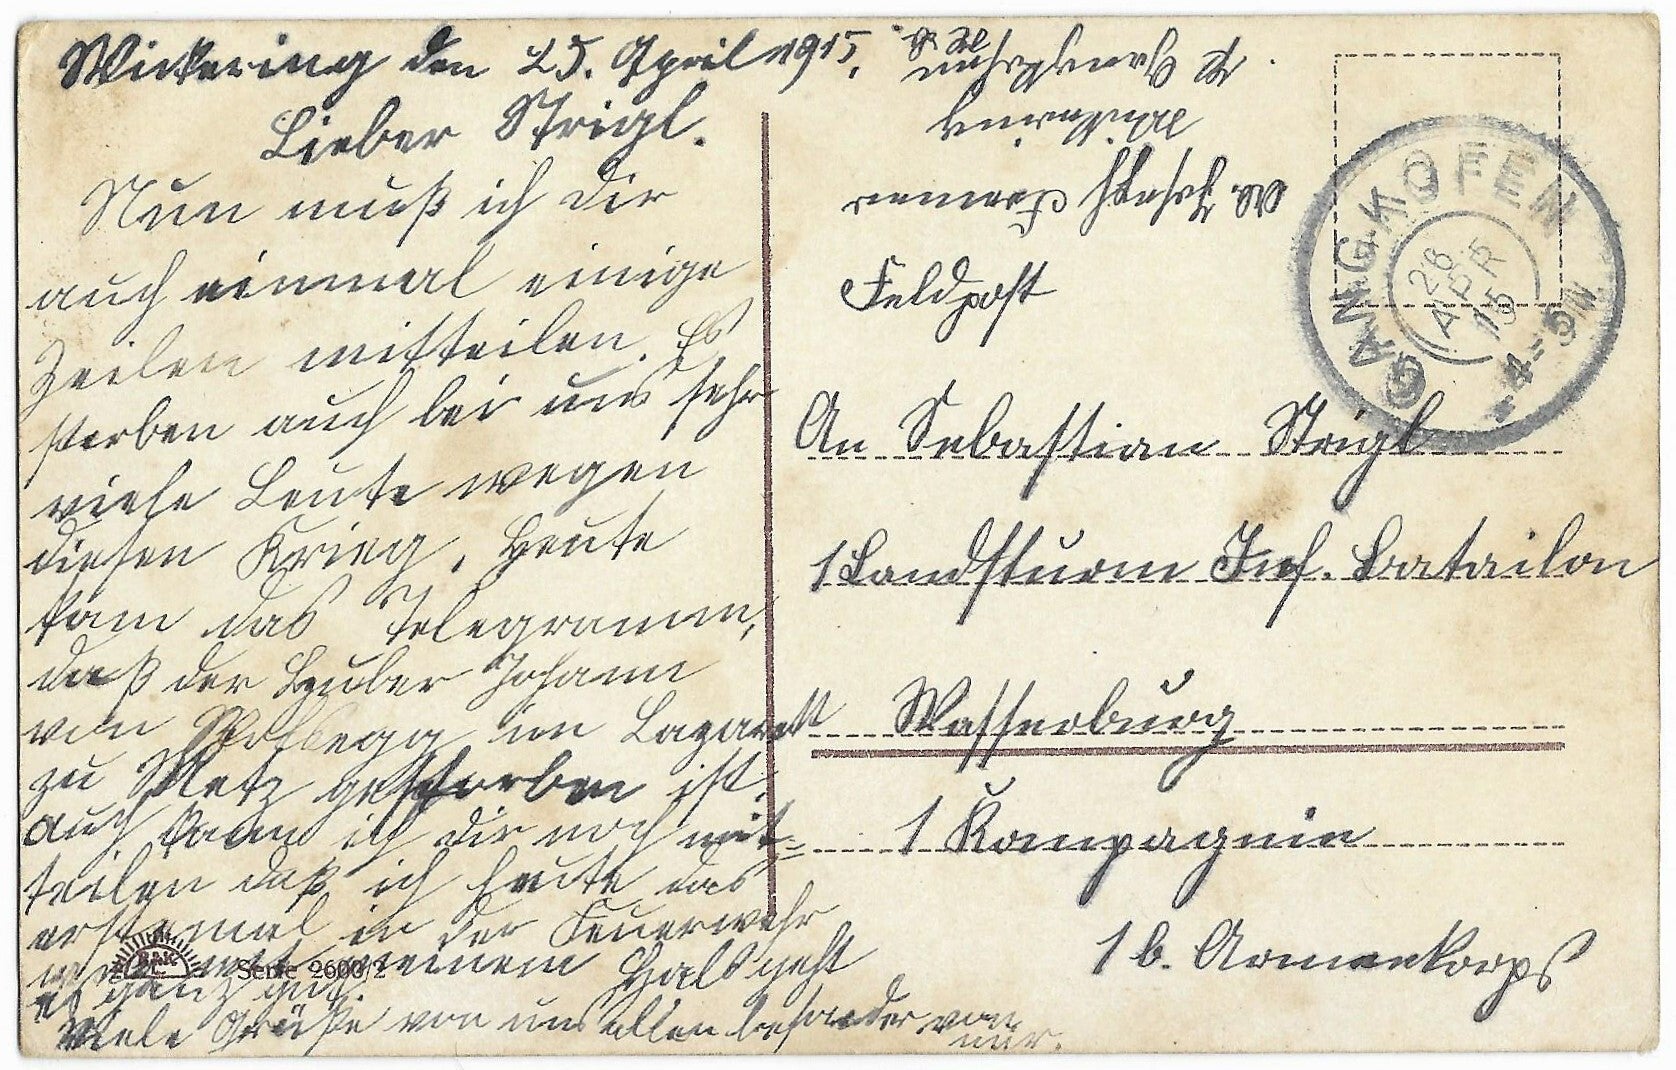 Wickering den 25. April 1915.
Lieber Strigl.
Nun muß ich dir
auch einmal einige
Zeilen mitteilen. Es
sterben auch bei uns sehr
viele Leute wegen
diesen Krieg. Heute
kam das Telegramm,
daß der Huber Johann
von im Lazarett
zu Metz gestorben ist.
auch kann ich dir noch mit=
teilen daß ich heute das
erstemal in der Feuerwehr
war mit meinem Hals geht
es ganz gut.
Viele Grüße von uns allen besonder von
mir.
Serie 2600/2
Wickering
Feldpost
LANGKOFEN
26
APR
15
4-5N
An Sebastian Strigl
1 Landsturm Inf. Batailon
Wasserburg
1 Kompagnie
1 b. Armeekorps